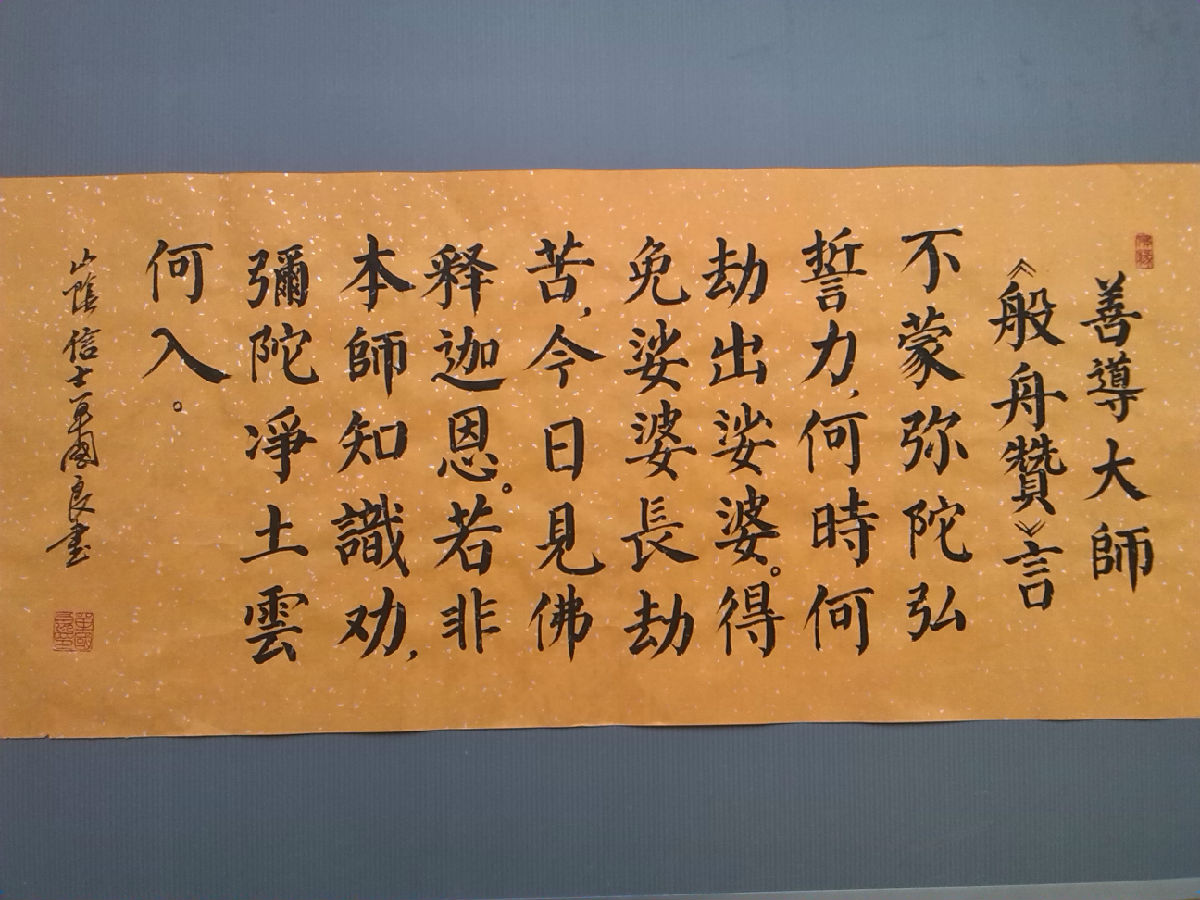 善導大師
《般舟贊》言
不蒙弥陀弘
誓力,何時何
劫出娑婆。得
免娑婆長劫
苦,今日見佛
釋迦恩。若非
本師知識劝,
彌陀凈土雲
何入。
山陰信士單國良書